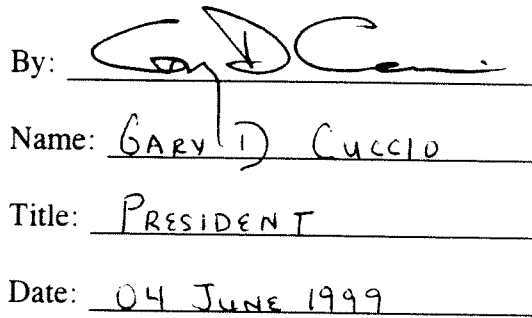 By:
Name: GARY D CUCCIO
Title: PRESIDENT
Date: 04 JUNE 1999